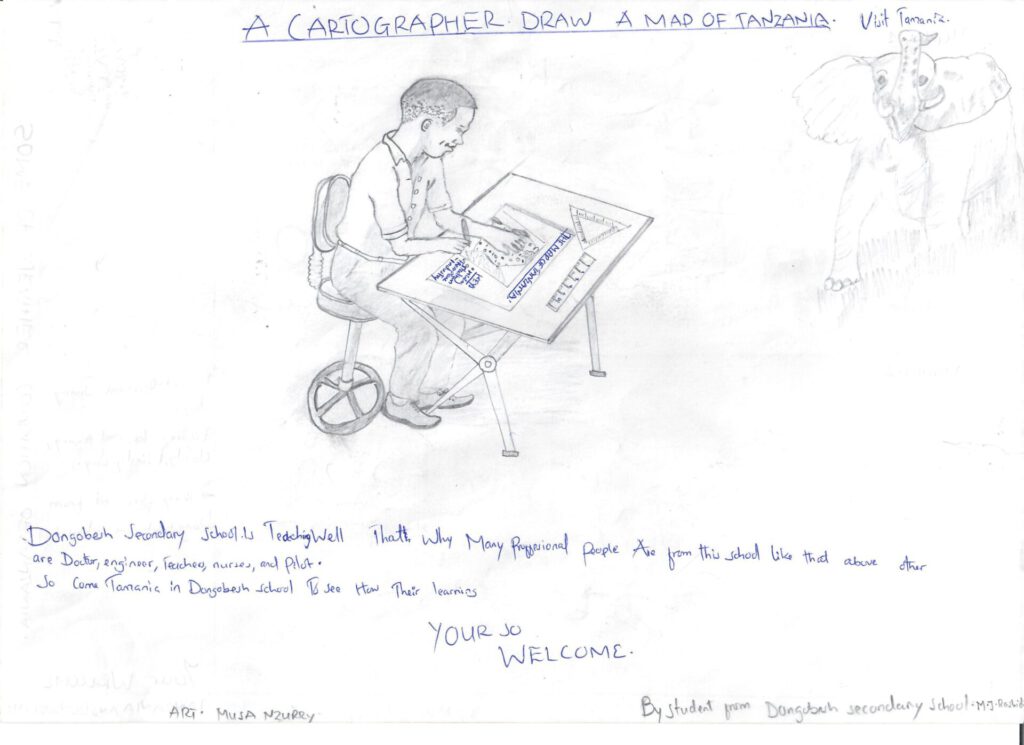 A CARTOGRAPHER DRAW A MAP OF TANZANIA.
Visit Tanzania.
THE MAP OF TANZANIA.
Dongobesh Secondary School. Is Teaching Well That's Why Many Proffesional people Are from this school like that above other
are Doctor, engineer, Teachers, nurses, and Pilot.
So Come Tanzania in Dongobesh school To see How Their learning
YOUR SO
WELCOME.
ART. MUSA NZURRY
By student from Dongobesh secondary school. M.J. Rashid